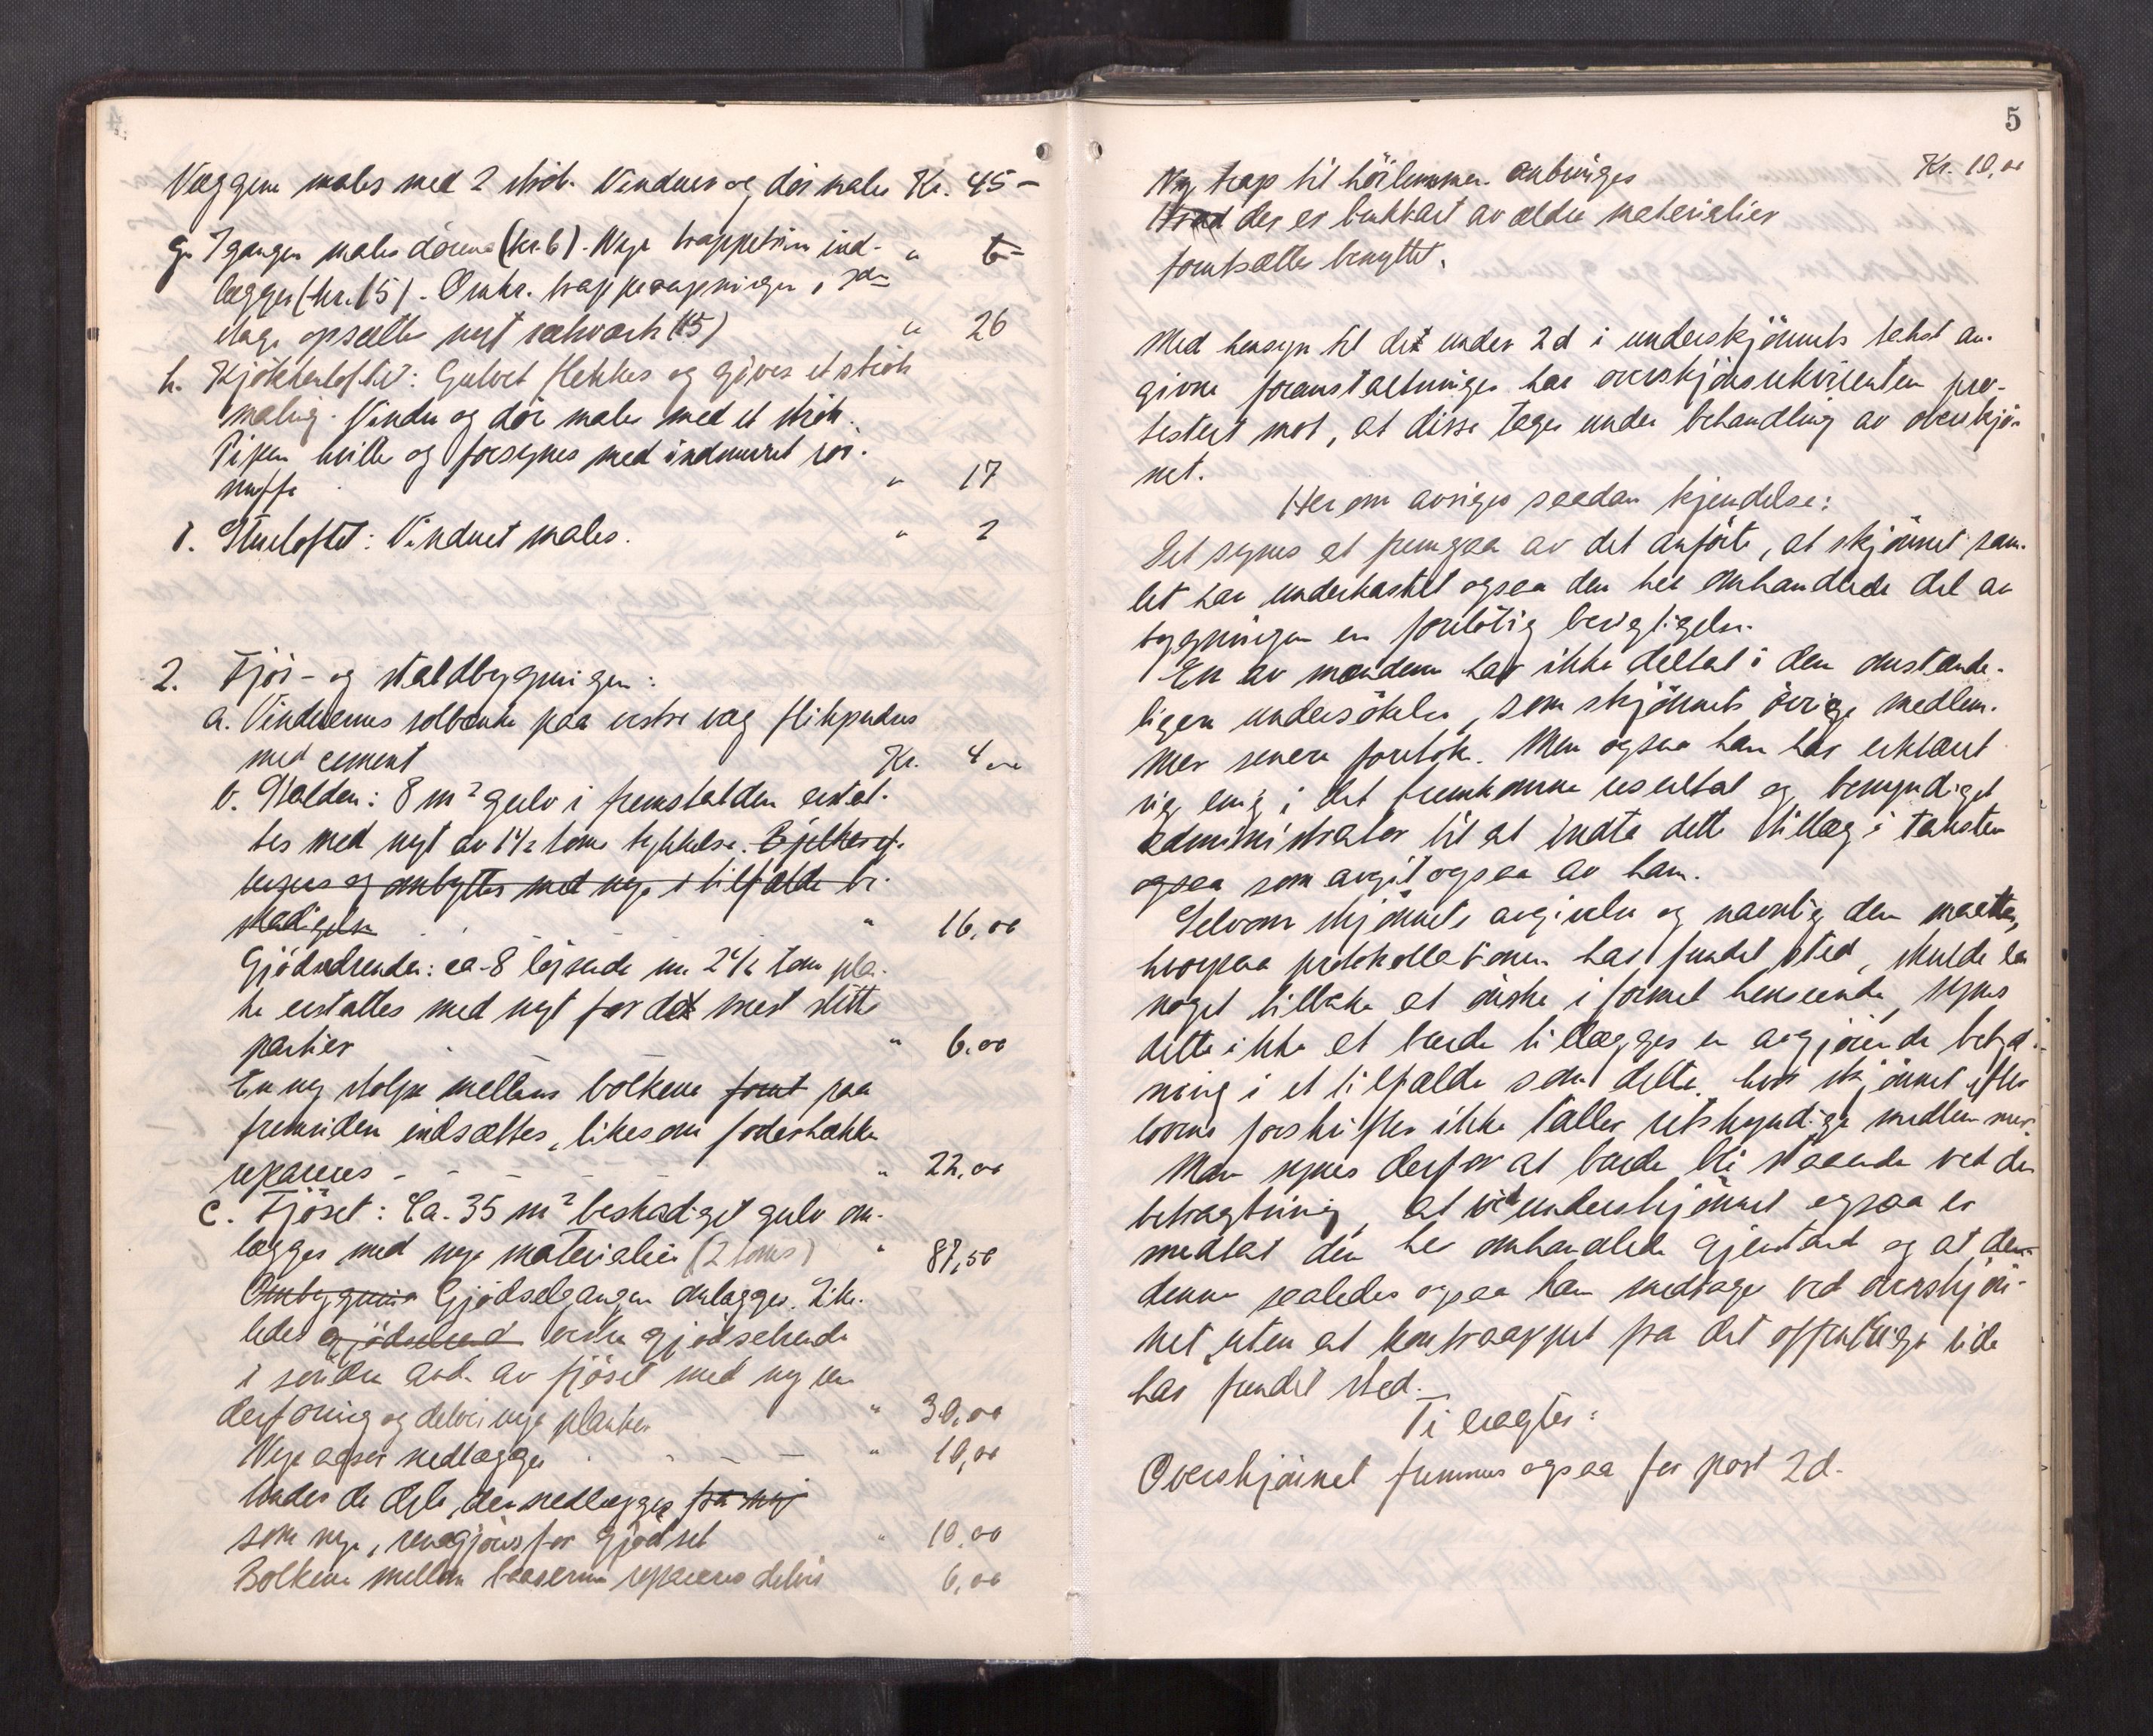 Væggene males med 2 strök. Vinduer og dör males Kr. 45 -
g. I gangen males dörene (kr. 6). Nye trappetrin ind- " 6 -
lægges (kr. 15). Omkr. trappe
etage opsættes nyt rækværk (15) " 26
h. Kjökkenloftet: Gulvet flekkes og gives et strök
maling. Vindu og dör males med et strök.
Pipen hvittes og forsynes med indmuret rör-
muffe " 17
i. Stueloftet: Vinduet males. " 2
2. Fjös- og staldbygningen:
a. Vinduernes solbænke paa vestre væg flikpudses
med cement Kr. 4
b. Stalden: 8 m² gulv i fremstalden erstat-
tes med nyt av 1 1/2 toms tykkelse. Bjelker ef-
terses og ombyttes med nye i tilfælde be-
skadigelse " 16,00
Gjödselrenden: ca. 8 löpende m. 2 1/2 tom plan-
ke erstattes med nyt for det mest slitte
partier " 6.00
En ny stolpe mellem bolkene forut paa
fremsiden indsættes, likesom foderhækken
repareres - - - - " 22,00
c. Fjöset: Ca. 35 m² beskadiget gulv om-
lægges med nye materialier (2 toms) " 87,50
Ombygning Gjödselgangen omlægges. Like-
ledes gjödselrend vestre gjödselrende
i söndre ende av fjöset med ny un
derforing og delvis nye planker " 30,00
Nye aaser nedlægges - - - " 10,00
Under de dele, der nedlægges
som nye, rengjöres for gjödsel " 10,00
Bolkene mellem baasene repareres delvis 6,00
5
Ny trap til höilemmen anbringes Kr. 10,00
der er brukbart av ældre materialier
forutsættes benyttet.
Med hensyn til det under 2d i underskjönnets tekst an-
givne foranstaltninger har overskjönsrekvirenten pro-
testert mot, at disse tages under behandling av overskjön-
net.
Herom avsiges saadan kjendelse:
Det synes at fremgaa av det anförte, at skjönnet sam-
let har underkastet ogsaa den her omhandlede del av
bygningen en forelöbig besigtigelse.
En av mændene har ikke deltat i den omstænde-
ligere undersökelse, som skjönnets övrige medlem-
mer senere foretok. Men ogsaa han har erklært
sig enig i det fremkomne resultat og bemyndiget
administrator til at indta dette tillæg i taksten
ogsaa som avgit ogsaa av ham.
Selvom skjönnets avgivelse og navnlig den maate,
hvorpaa protokollationen har fundet sted, skulde la
noget tilbake at önske i formel henseende, synes
dette ikke at burde tillægges en avgjörende betyd-
ning i et tilfælde som dette, hvor skjönnet efter
lovens forskrifter ikke tæller retskyndige medlemmer.
Man synes derfor at burde bli staaende ved den
betragtning, at ved underskjönnet ogsaa er
medtat den her omhandlede gjenstand og at den-
denne saaledes ogsaa kan medtages ved overskjön-
net, uten at kontraappel fra det offentliges side
har fundet sted.
Ti eragtes:
Overskjönnet fremmes ogsaa for post 2d.